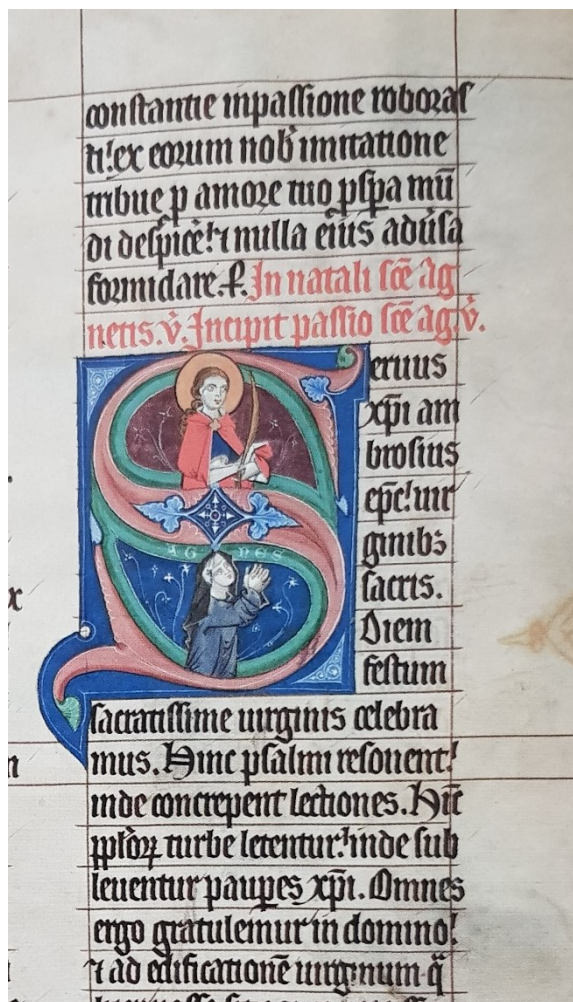 constantie inpassione roboras
ti! ex eorum nob̾ imitatione
tribue p amore tuo pspa mū
di despice̾! ⁊ nulla eius adu̾sa
formidare. ꝑ. In natali sc̄e Ag
netis. v̾. Incipit passio sc̄e ag. v̾.
eruus
xp̄i am
brosius
ep̄c! uir
ginibꝫ
sacris.
Diem
AG NES
festum
sacratissime uirginis celebra
mus. Hinc psalmi resonent!
inde concrepent lectiones. Hīc
ppl̾oꝝ turbe letentur! hinde sub
leuentur paupes xp̄i. Omnes
ergo gratulemur in domino!
⁊ ad edificationē uirginum q̄